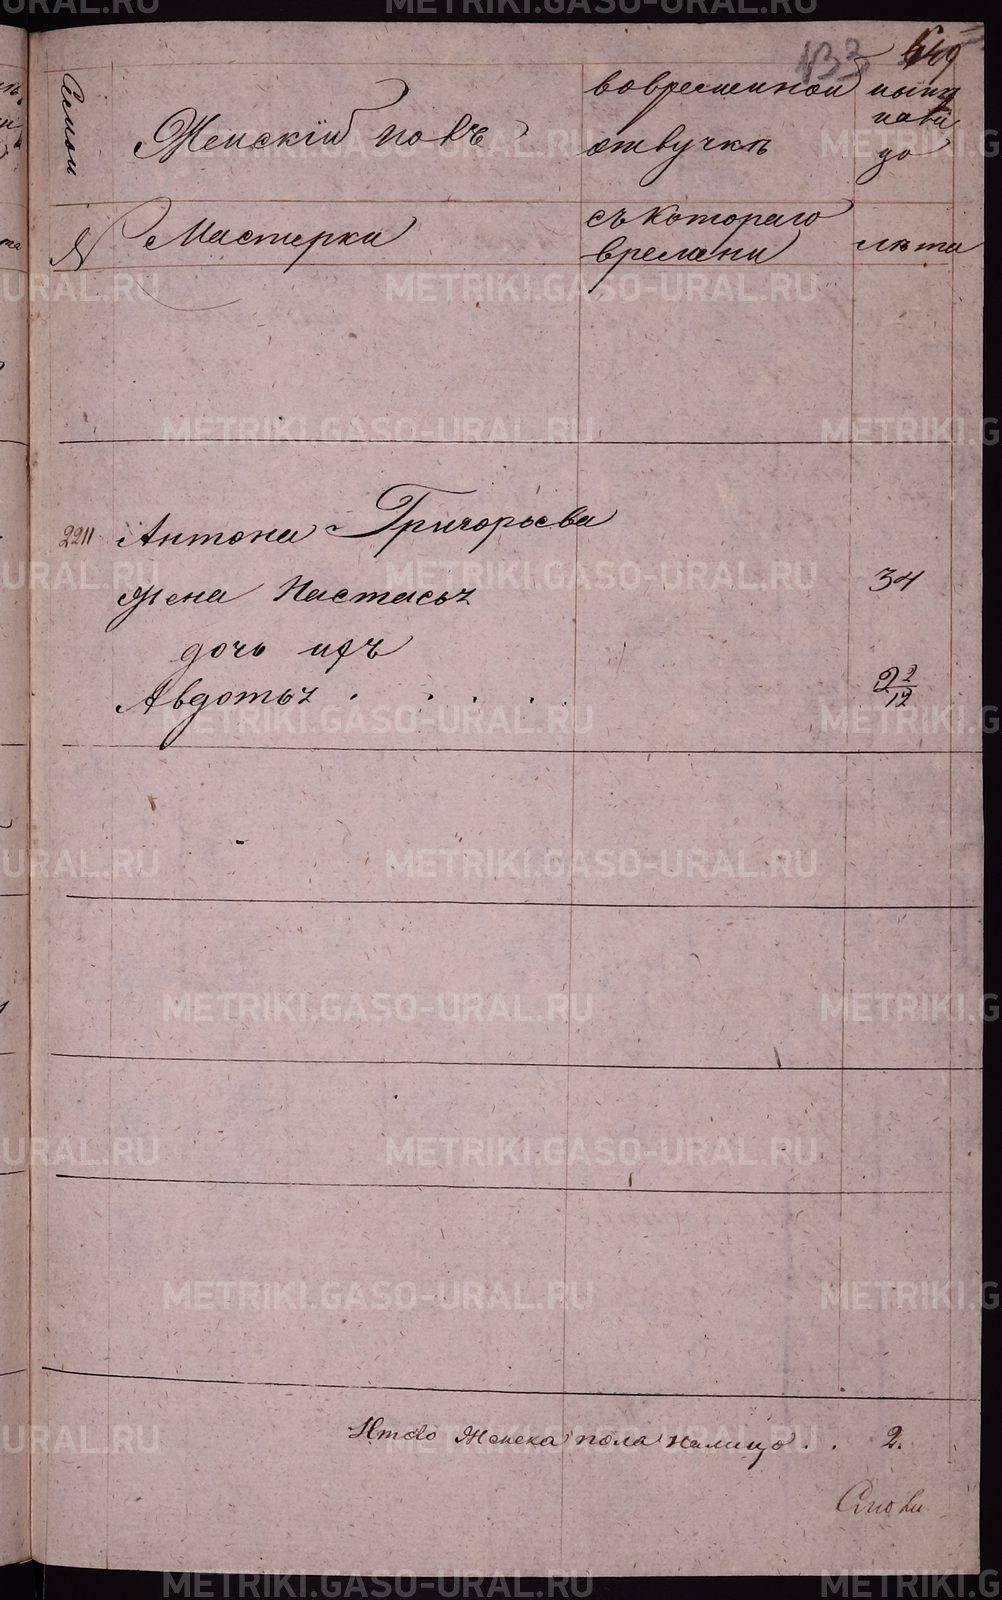 133
649
Семьи
Женскій полъ
во временной
отлучкѣ
ныне
на ли
цо
№
Мастерки
съ котораго
времени
лѣта
2211
Антона Григорьева
жена Настасья
34
дочь ихъ
Авдотья . . . . .
2 2/12
Итого женска пола налицо . .
2.
METRIKI.GASO-URAL.RU